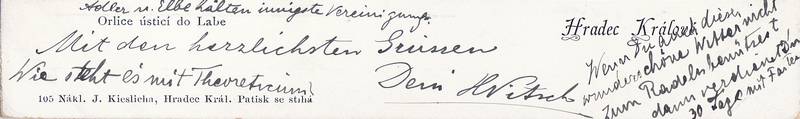 Adler u. Elbe halten innigste Vereinigung.
Orlice ústící do Labe
Hradec Králové
Mit den herzlichsten Grüssen
Wie steht es mit Theoreticum?
Dein HVitsch
105 Nákl. J. Kieslicha, Hradec Král. Patisk se stíhá
Wenn Du auch dieses
wunderschöne Wetter nicht
zum Radeln benützest
dann verdienst Du
30 Tage mit Fasten